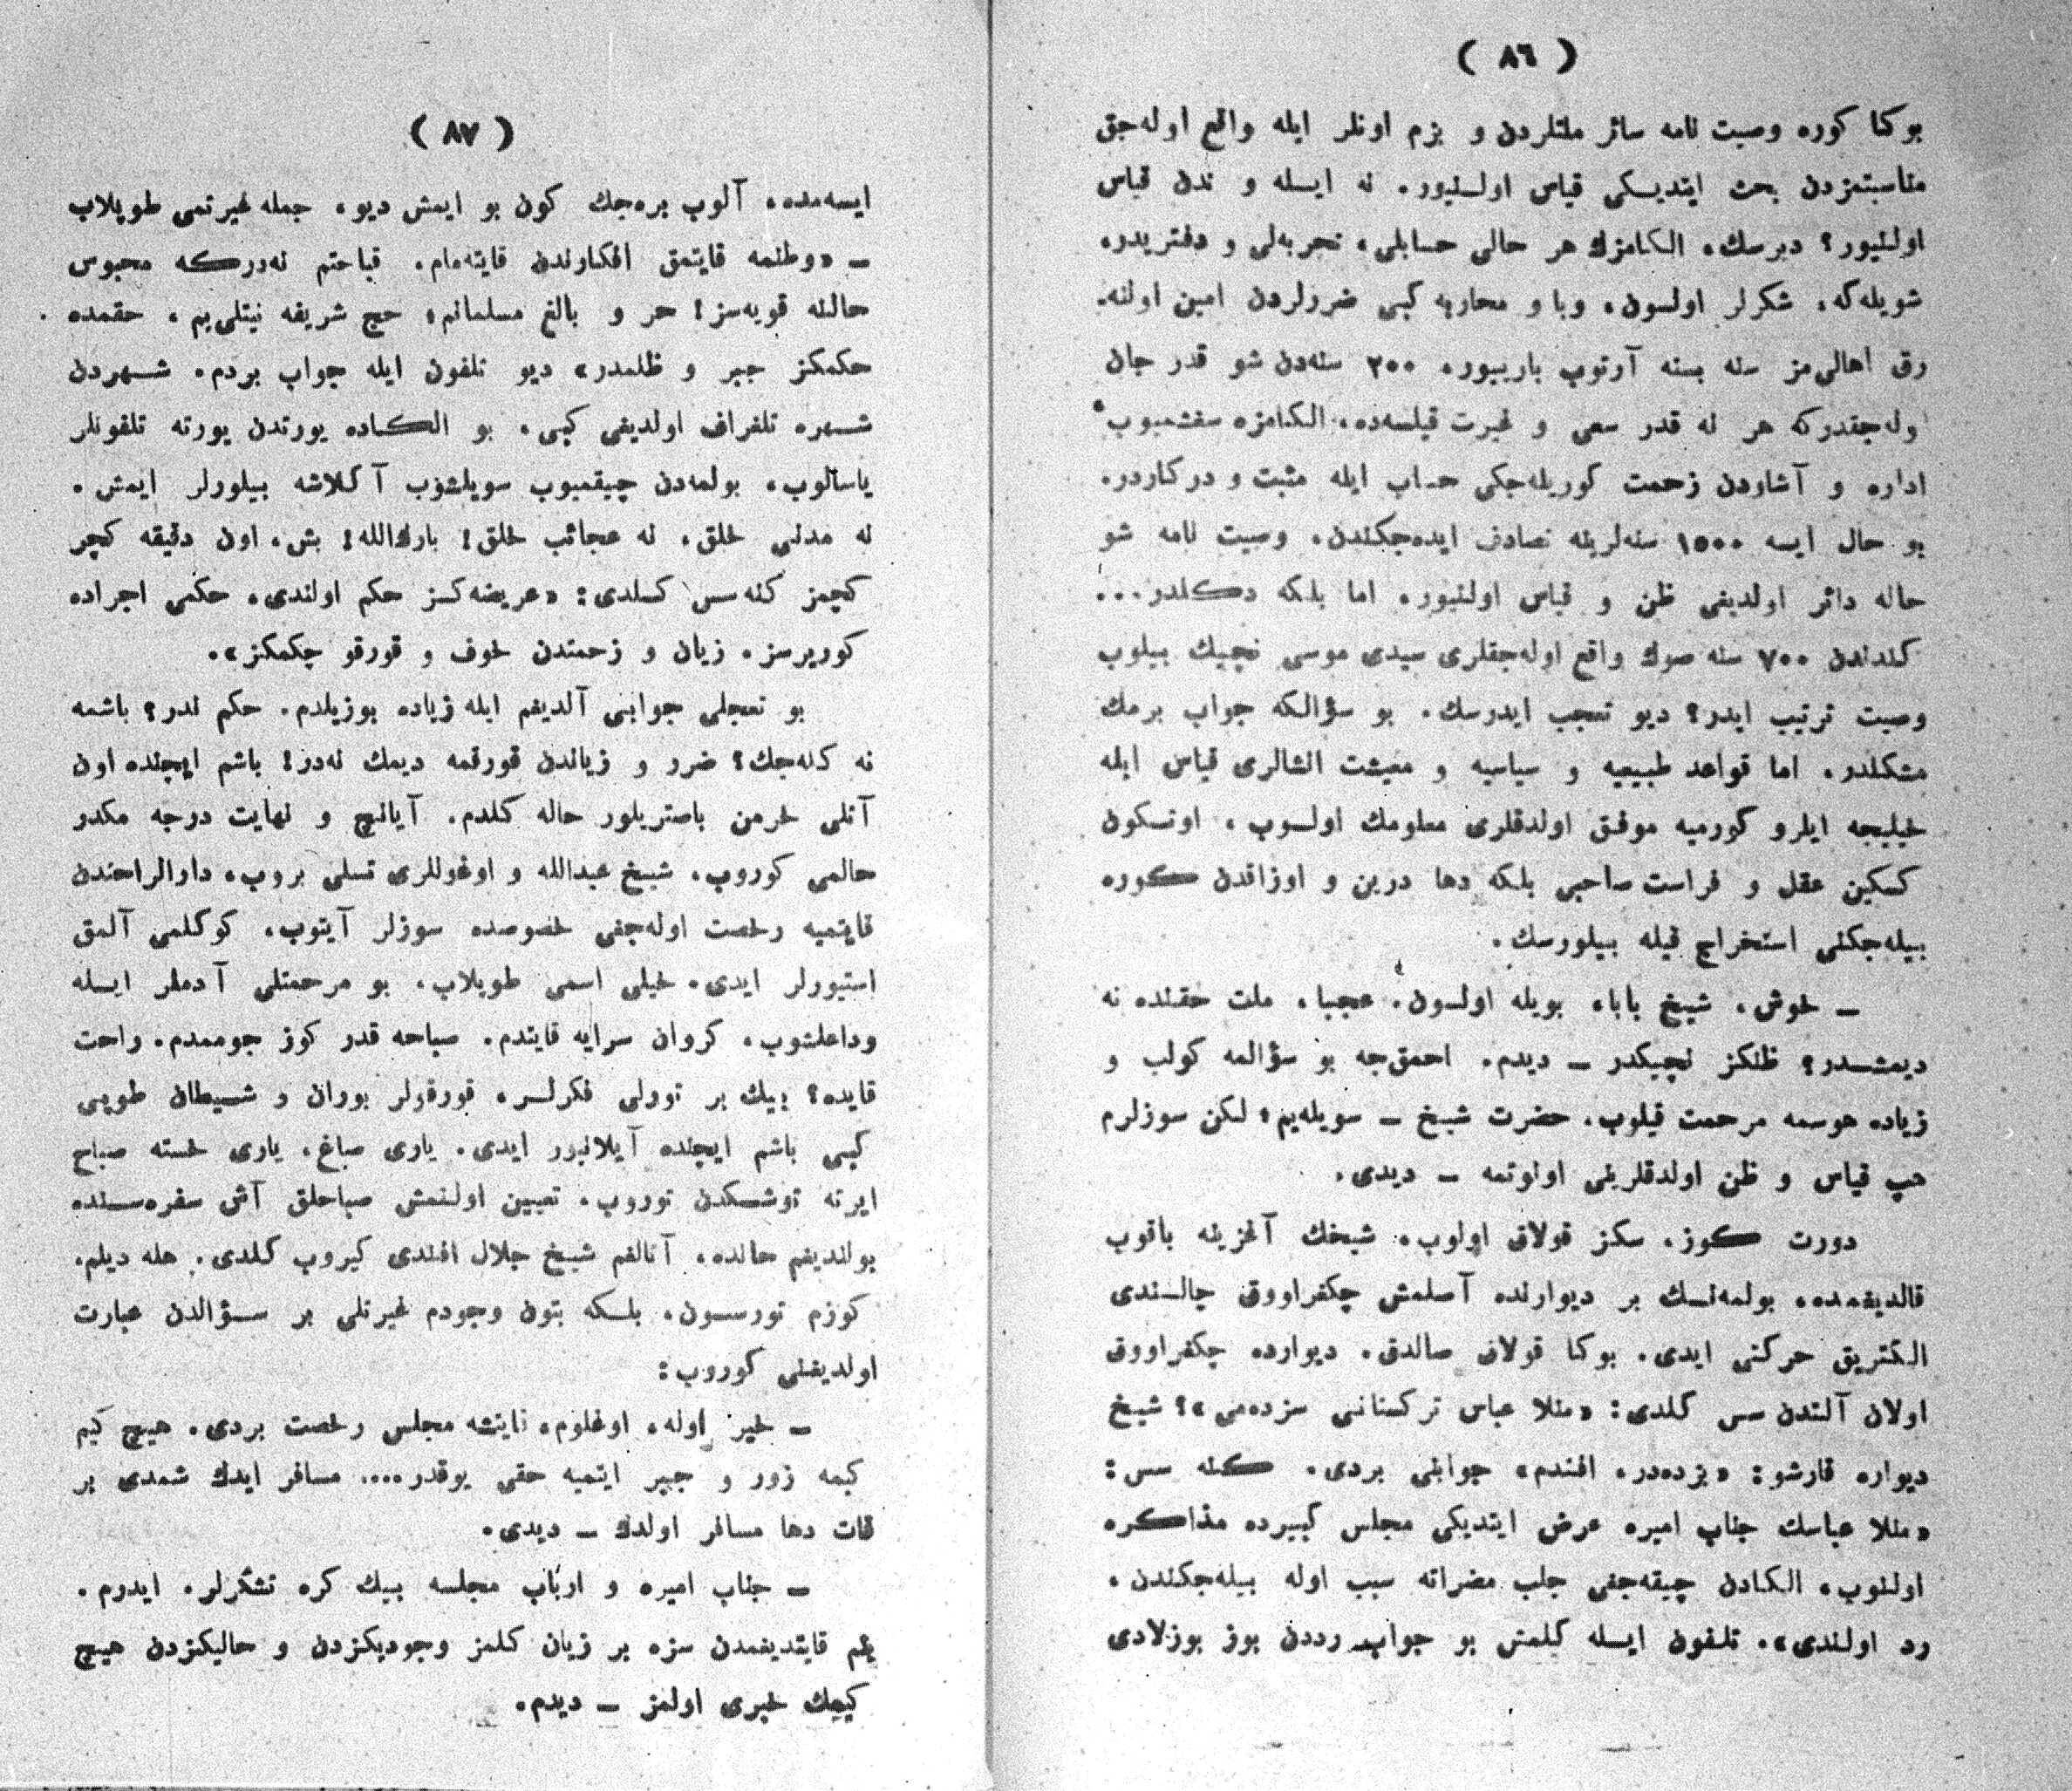 ( ٨٦ )
بوكا كوره وصيت نامه سائر ملتلردن و بزم اونلر ايله واقع اوله‌جق
مناسبتمزدن بحث ايتديـكى قياس اولـنيور. نه ايسله و ندن قياس
اولنيور؟ ديرسك، الـكامزك هر حالى حسابلى، تجربه‌لى و دفتريدر.
شويله‌كه، شكرلر اولسون، وبا و محاربه كبى ضررلردن امين اولنه.
رق اهالى‌مز سنه بسنه آرتوب بارييور. ٢٠٠ سنه‌دن شو قدر جان
وله‌جقدركه هر نه قدر سعى و غيرت قيلسه‌ده، الـكامزه سغشميوب
اداره و آشاودن زحمت كوريله‌جكى حساب ايله مثبت و دركاردر.
بو حال ايسه ١٥٠٠ سنه‌لرينه تصادف ايده‌جكندن، وصيت نامه شو
حاله دائر اولديغى ظن و قياس اولنيور. اما بلكه دكلدر...
كندندن ٧٠٠ سنه صوك واقع اوله‌جقلرى سيدى موسى نچيك بيلوب
وصيت ترتيب ايدر؟ ديو تعجب ايدرسك. بو سؤالكه جواب برمك
مشكلدر. اما قواعد طبيعيه و سياسيه و معيشت انشالرى قياس ايله
خيليجه ايلرو كورميه موفق اولدقلرى معلومك اولـوب، اوتـكون
كسكين عقل و فراست صاحبى بلكه دها درين و اوزاقدن كوره
بيله‌جكنى استخراج قيله بيلورسك.
ـ خوش، شيخ بابا، بويله اولـسون. عجبا، ملت حقنده نه
ديمشـدر؟ ظنكز نچيكدر ـ ديدم. احمق‌جه بو سؤالمه كولب و
زياده هوسمه مرحمت قيلوب، حضرت شيخ ـ سويله‌يم؛ لكن سوزلرم
هپ قياس و ظن اولدقلرينى اونوتمه ـ ديدى.
دورت كوز، سكز قولاق اولوب، شيخك آغزينه باقوب
قالديغمده، بولمه‌نـك بر ديوارنده آصلمش چكفراووق چالـندى
الكتريق حركتى ايدى. بوكا قولاق صالدق. ديوارده چكفراووق
اولان آلتدن سس كلدى: «منلا عباس تركستانى سزده‌مى»؟ شيخ
ديواره قارشو: «بزده‌در، افندم» جوابنى بردى. كنه سس:
«منلا عباسك جناب اميره عرض ايتديكى مجلس كبيرده مذاكره
اولنوب، الـكادن چيقه‌جغى جلب مضراته سبب اوله بيله‌جكندن،
رد اولندى». تلـفون ايسله كلمش بو جواب رددن بوز بوزلادى
( ٨٧ )
ايسه‌مده، آلوب بره‌جك كون بو ايمش ديو، جمله غيرتمى طوپلاب
ـ «وطنمه قايتمق افكارندن قايته‌مام. قباحتم نه‌دركه محبوس
حالنه قويه‌سز! حر و بالغ مسلمانم؛ حج شريفه نيتلى‌يم، حقمده
حكمكز جبر و ظلمدر» ديو تلفون ايله جواب بردم. شـهردن
شـهره تلغراف اولديغى كبى، بو الكـاده يورتدن يورته تلفونلر
ياسالوب، بولمه‌دن چيقميوب سويلشوب آكلاشه بيلورلر ايمش.
نه مدنى خلق، نه عجائب خلق! بارك‌الله! بش، اون دقيقه كچر
كچمز كنه سس كـلدى: «عريضه‌كـز حكم اولندى، حكمى اجراده
كوريرسز. زيان و زحمتدن خوف و قورقو چكمكز».
بو تعجلى جوابى آلديغم ايله زياده بوزيلدم. حكم ندر؟ باشمه
نه كله‌جك؟ ضرر و زياندن قورقمه ديمك نه‌در! باشم ايچنده اون
آتلى خرمن باصتريلور حاله كلدم. آيانچ و نهايت درجه مكدر
حالمى كوروب، شيخ عبدالله و اوغوللرى تسلى بروب، دارالراحتدن
قايتميه رخصت اوله‌جغى خصوصده سوزلر آيتوب، كوكلمى آلمق
استيورلر ايدى. خيلى اسمى طوپلاب، بو مرحمتلى آدملر ايـله
وداعلشوب، كروان سرايه قايتدم. صباحه قدر كوز جوممدم. راحت
قايده؟ بيك بر تورلى فكرلـر، قورقولر بوران و شـيطان طوپى
كبى باشم ايچنده آيلانيور ايدى. يارى صاغ، يارى خسته صباح
ايرته توشـكدن توروب، تعيين اولنمش صباحلق آش سفره‌سـنده
بولنديغم حالده، آتالغم شيخ جلال افندى كيروب كلدى. هله ديلم،
كوزم تورسـون، بلـكه بتون وجودم غيرتلى بر سـؤالدن عبارت
اولديغنى كوروب:
ـ خير اوله، اوغلوم، قايتشه مجلس رخصت بردى. هيچ كيم
كيمه زور و جبر ايتميه حقى يوقدر.... مسافر ايدك شمدى بر
قات دها مسافر اولدك ـ ديدى.
ـ جناب اميره و ارباب مجلسه بيك كره تشكرلر. ايدرم.
بم قايتديغمدن سزه بر زيان كلمز وجوديكزدن و حاليكزدن هيچ
كيمك خبرى اولمز ـ ديدم.